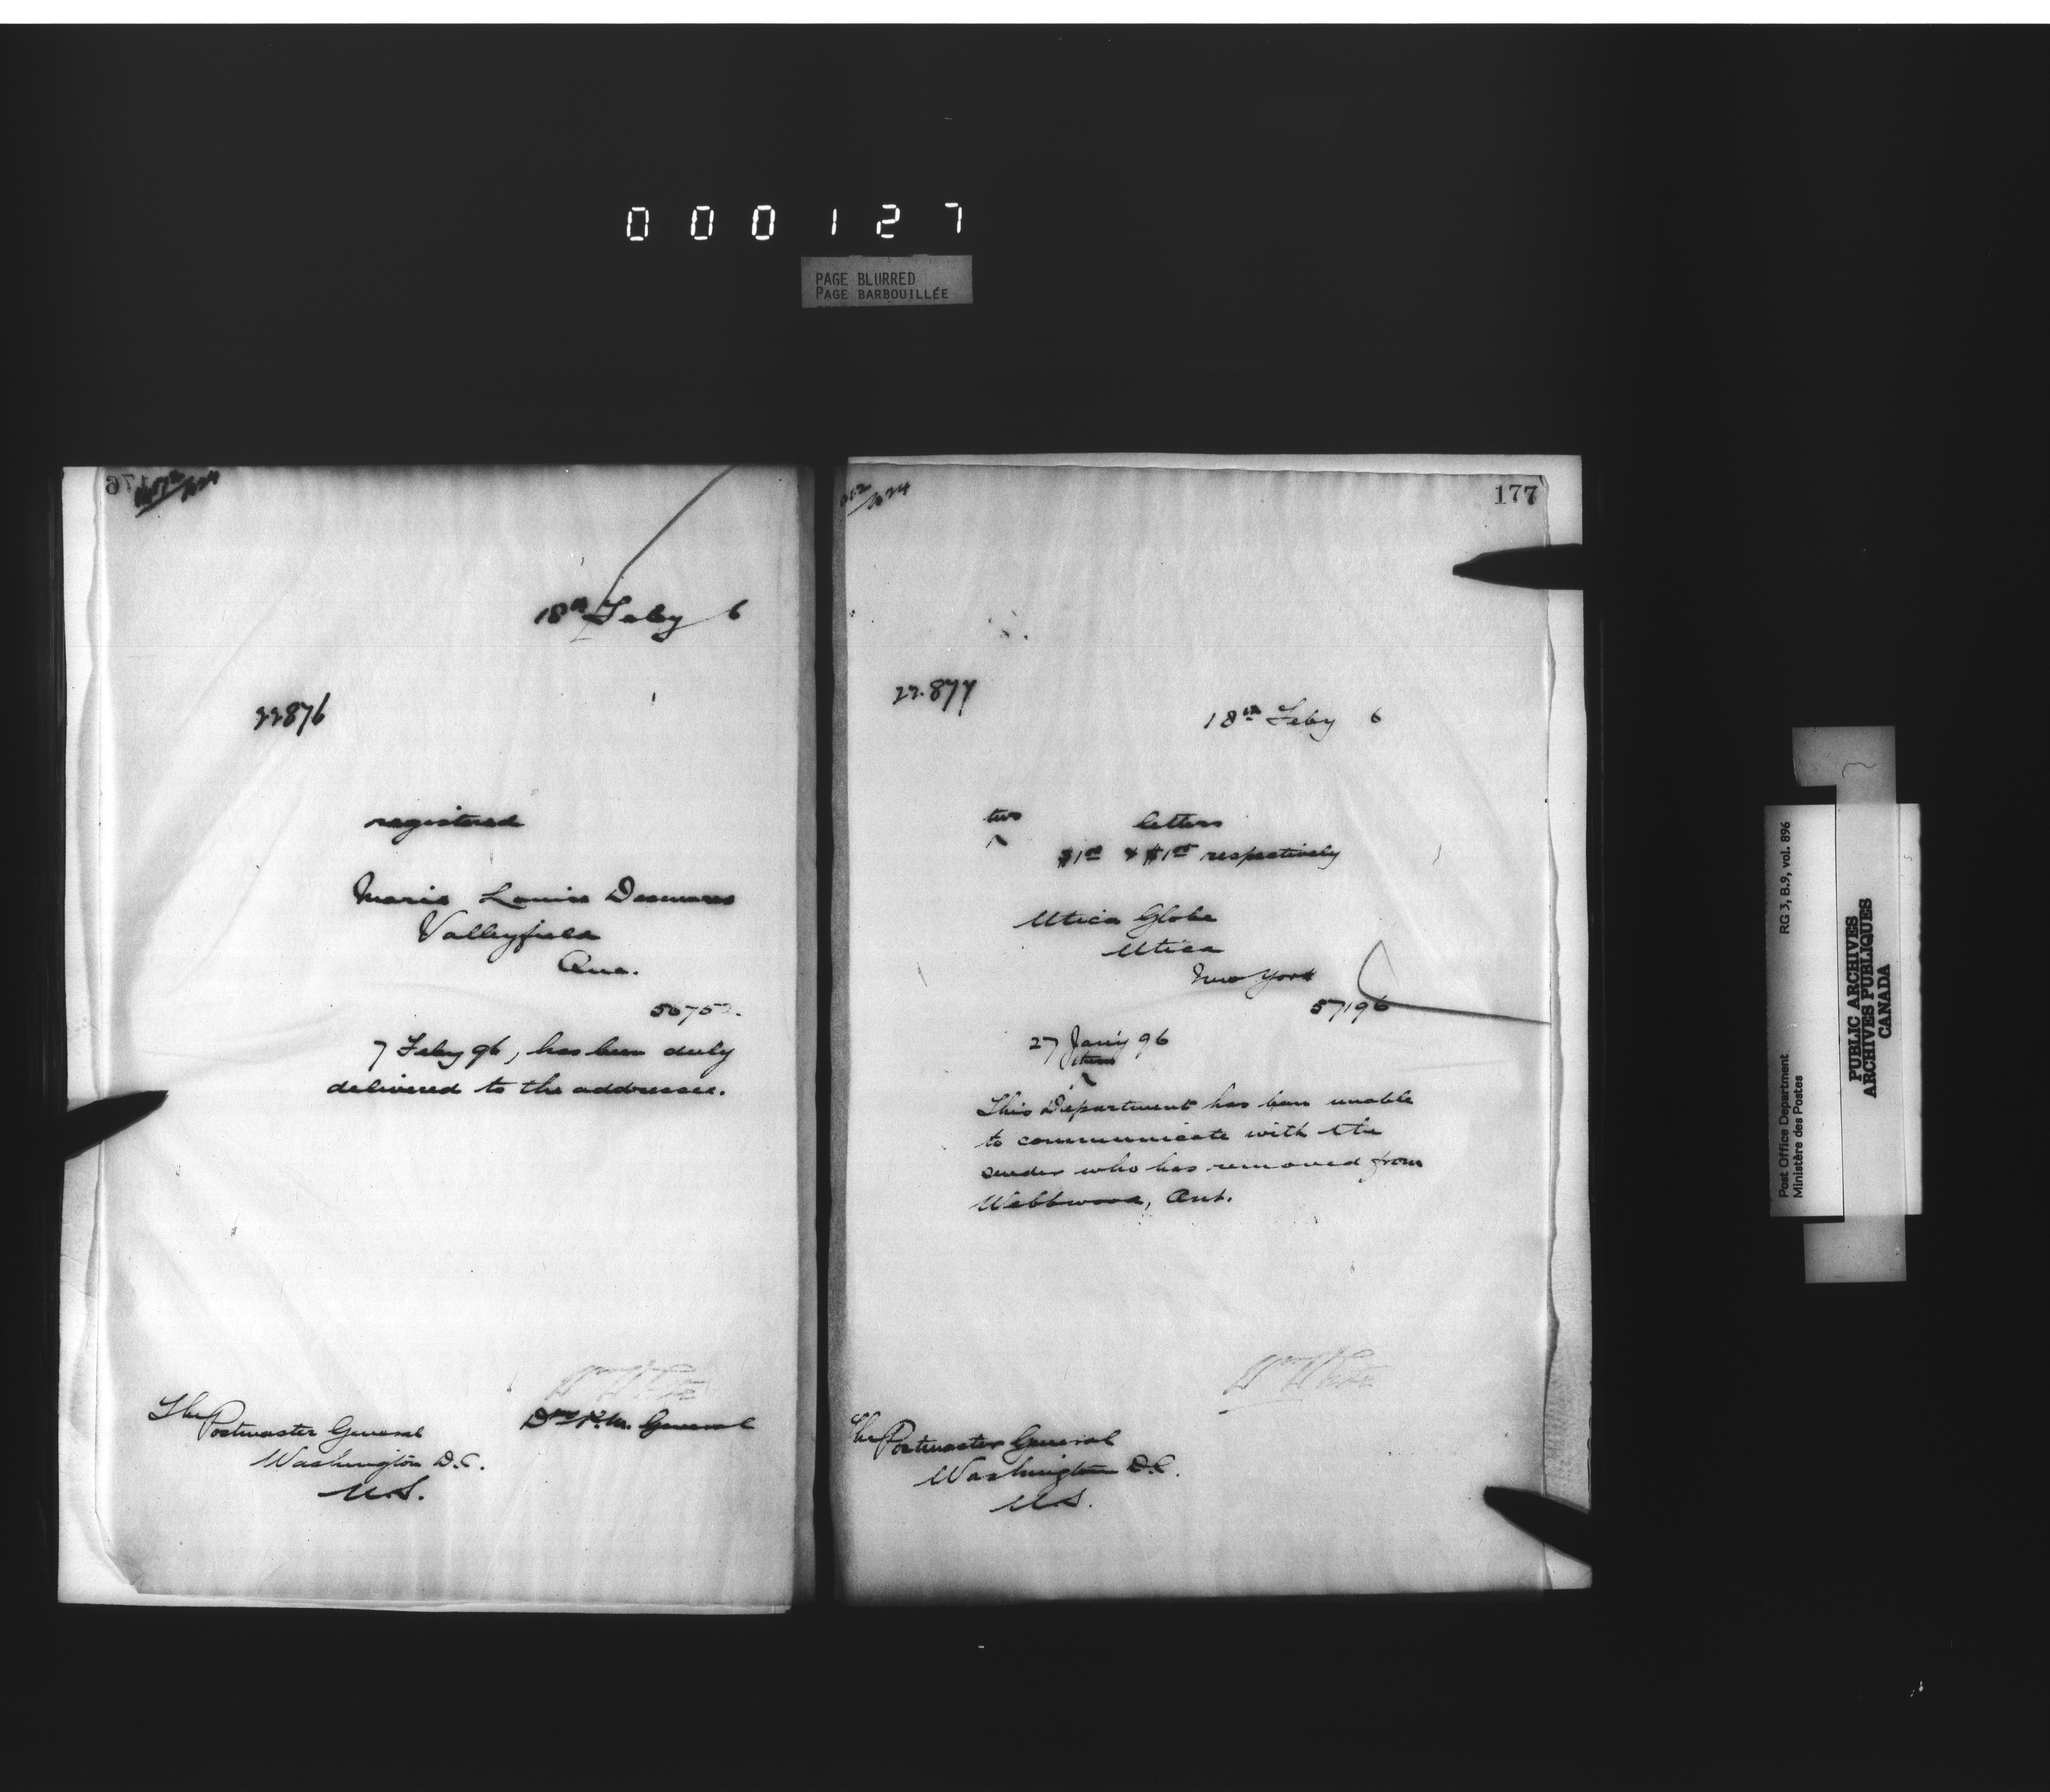 000127
PAGE BLURRED
PAGE BARBOUILLÉE
176
18th Feby 6
22876
registered
Marie Louise Desmares
Valleyfield
Que.
7 Feby 96, has been duly
delivered to the addressee.
The Postmaster General
Washington D.C.
U.S.
Dy P.M. General
177
22.877
18th Feby 6
two letters
$1.00 & $1.00 respectively
Utica Globe
Utica
New York
57196
27 Jany 96
This Department has been unable
to communicate with the
sender who has removed from
Webbwood, Ont.
The Postmaster General
Washington D.C.
U.S.
Post Office Department
Ministère des Postes
RG 3, B.9, vol. 896
PUBLIC ARCHIVES
ARCHIVES PUBLIQUES
CANADA